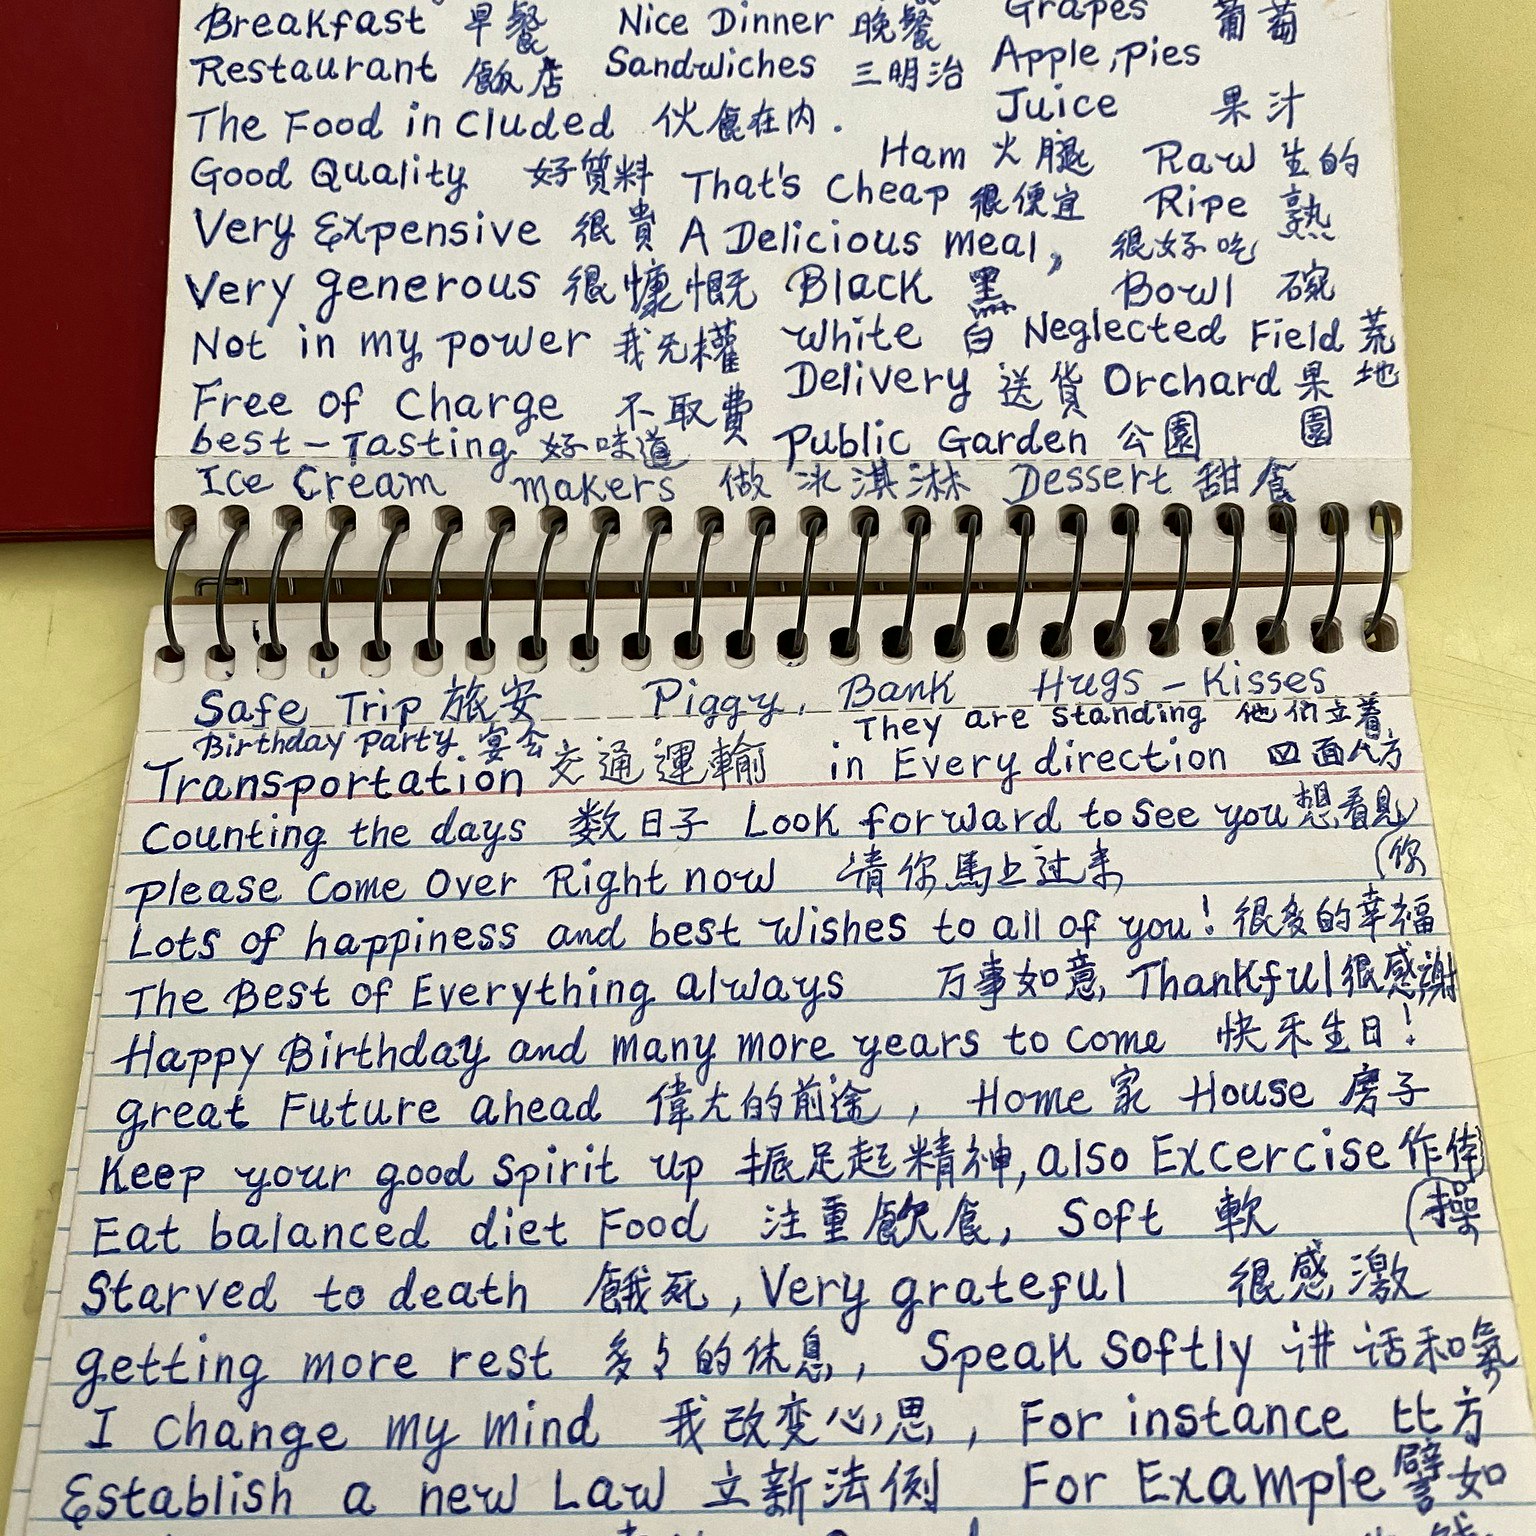 Breakfast 早餐 Nice Dinner 晚餐 Grapes 葡萄
Restaurant 飯店 Sandwiches 三明治 Apple, Pies
The Food in Cluded 伙食在内. Juice 果汁
Good Quality 好質料 Ham 火腿 Raw 生的
That's Cheap 很便宜 Ripe 熟
Very Expensive 很貴 A Delicious meal, 很好吃
Very generous 很慷慨 Black 黑 Bowl 碗
Not in my power 我无權 White 白 Neglected Field 荒地
Free of Charge 不取費 Delivery 送貨 Orchard 果園
best-Tasting 好味道 Public Garden 公園
Ice Cream makers 做冰淇淋 Dessert 甜食
Safe Trip 旅安 Piggy, Bank Hugs - Kisses
Birthday Party 宴会 They are standing 他们立着
Transportation 交通運輸 in Every direction 四面八方
Counting the days 数日子 Look forward to See you 想看見(你
Please Come Over Right now 请你馬上过来
Lots of happiness and best wishes to all of you! 很多的幸福
The Best of Everything always 万事如意, Thankful 很感謝
Happy Birthday and many more years to come 快乐生日!
great Future ahead 偉大的前途, Home 家 House 房子
Keep your good Spirit up 振足起精神, also Excercise 作体(操
Eat balanced diet Food 注重飲食, Soft 軟
Starved to death 餓死, Very grateful 很感激
getting more rest 多多的休息, Speak Softly 讲话和氣
I Change my mind 我改变心思, For instance 比方
Establish a new Law 立新法例 For Example 譬如